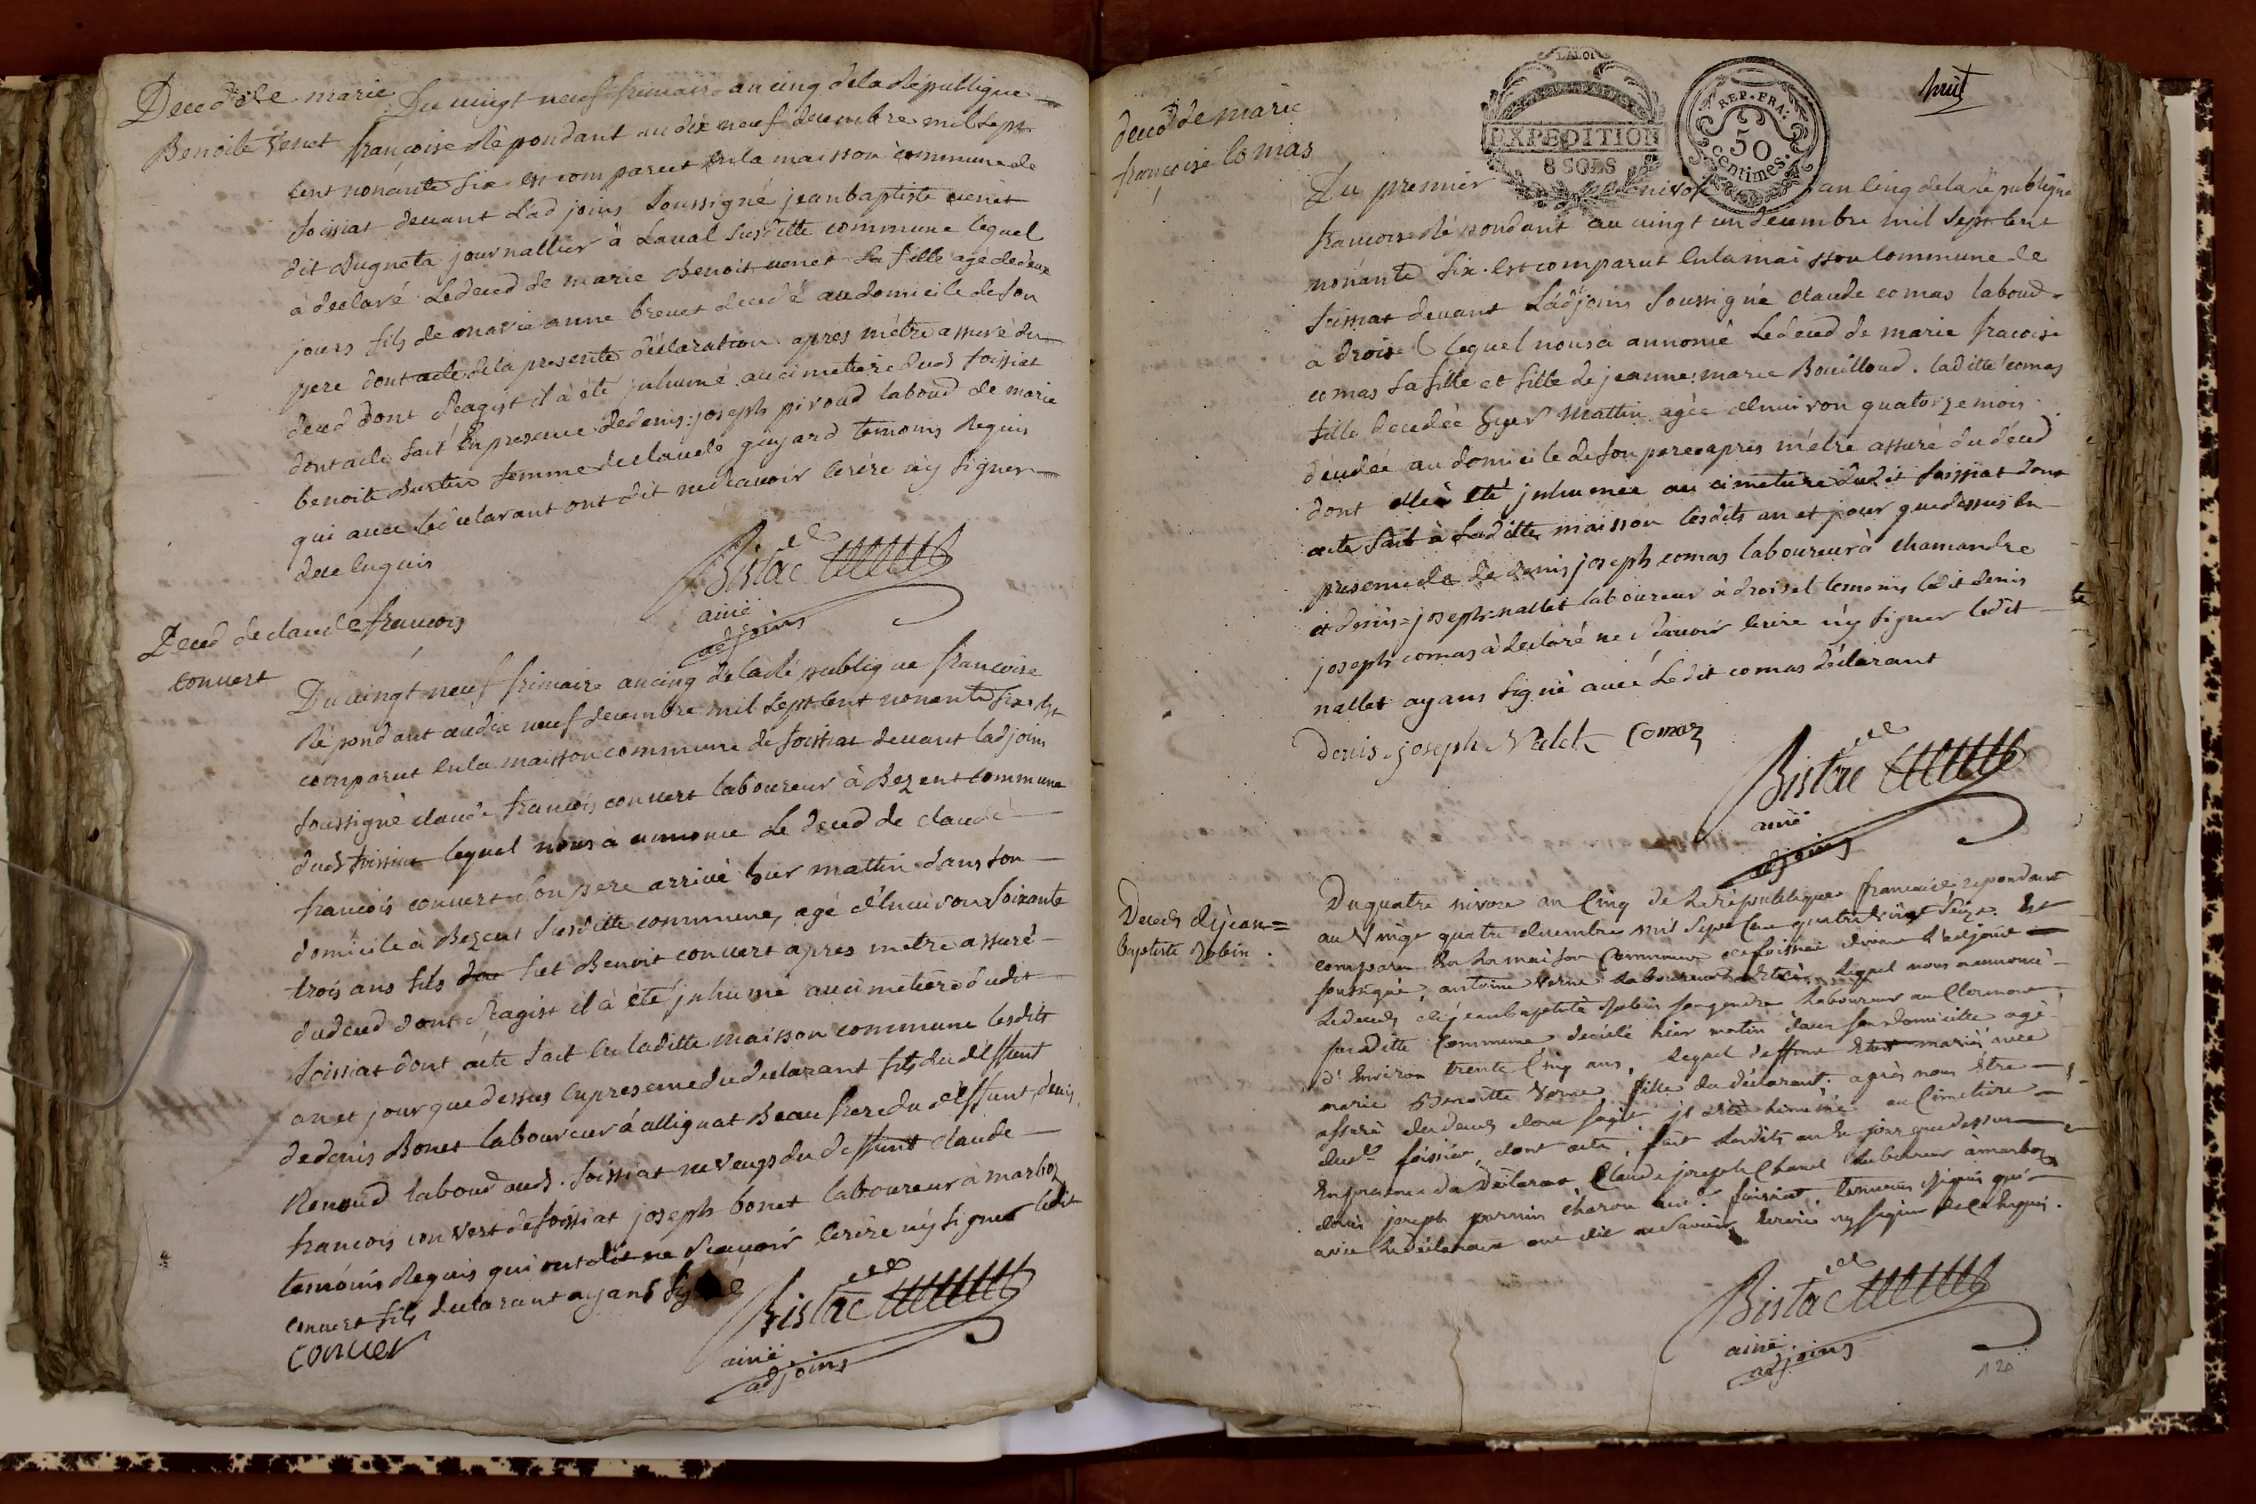 Deced de marie
Benoite Venet
Du vingt neuf frimaire an cinq de la République
françoise Répondant au dix neuf decembre mil sept
cent nonante six est comparut en la maison commune de
foissiat devant l'adjoins soussigné jean baptiste venet
dit Dugneta journallier à Laval susditte commune lequel
à declaré le deced de marie Benoit venet sa fille age de deux
jours fils de marie anne brevet decedé au domicile de son
pere dont acte de la presente déclaration apres mètre assuré du
deced dont S'eagist il à été juhumé au cimetiere dud foissiat
dont acte fait En presence de denis joseph piroud laboud de marie
benoite femme de claude guyard temoins Requis
qui avec le declarant ont dit ne scavoir Ecrire n'y signer
de ce Enquis
Bistac
ainé
adjoins
Deced de claude francois
convert
Du vingt neuf frimaire an cinq de la République francoise
Répondant au dix neuf decembre mil sept cent nonante six Est
comparut en la maison commune de foissiat devant ladjoins
soussigné claude francois convert laboureur à Bezent commune
dud foissiat lequel nous a annoncé le deced de claude
francois convert son pere arrivé hier mattin dans son
domicile à Bezent susditte commune, agé d'Environ soixante
trois ans fils de feu Benoit convert apres mètre assuré
du deced dont S'eagist il à été juhumé au cimetiere dudit
foissiat dont acte fait en laditte maison commune lesdits
an et jour que dessus en presence du declarant fils du deffunt
de denis Bonet laboureur à attignat Beau frere du deffunt, denis
Renoud laboud aud. foissiat neveups du deffunt claude
francois convert de foissiat joseph bonet laboureur à marboz
temoins Requis qui ont dit ne scavoir Ecrire n'y signer ledit
convert fils declarant ayant signé
convert
Bistac
ainé
adjoins
huit
LA LOI
EXPEDITION
8 SOLS
REP. FRA.
50
centimes.
deced de marie
françoise comas
Du premier nivose an cinq de la République
francoise Répondant au vingt un decembre mil sept cent
nonante six. est comparut en la maison commune de
foissiat devant L'adjoins soussigné claude comas laboud
a droisel lequel nous à annoncé le deced de marie fracoise
comas sa fille et fille de jeanne marie Bouilloud. laditte comas
fille decedée hyer mattin agée d'environ quatorze mois
décedée au domicile de son pere apres mètre assuré du déced
dont elle à été juhumée au cimetiere dudit foissiat dont
acte fait à laditte maison lesdits an et jour que dessus en
presence de de denis joseph comas laboureur à chamandre
et denis-joseph nallet laboureur à droisel temoins ledit denis
joseph comas à declaré ne scavoir Ecrire n'y signer ledit
nallet ayans signé avec Ledit comas déclarant
Denis joseph Nalet Comas
Bistac
ainé
adjoins
Deceds de jean=
Baptiste Robin.
Du quatre nivose an Cinq de la république française repondant
au Vingt quatre decembre mil Sept Cent quatre vingt Seize. Est
comparu En la maison Commune de foissiat devant L'adjoint
soussigné, antoine Verne laboureur lequel nous a annoncé
le deceds de jean baptiste Robin son gendre laboureur au Clermont
susditte Commune decedé hier matin dans son domicile agé
d'Environ trente Cinq ans, lequel deffunt Etoit marié avec
marie Benoitte Verne fille du déclarant; après nous Etre
assuré du deceds dont sagit il a été inhumé au Cimetiere
dud foissiat dont acte, fait lesdits an et jour que dessus
En presence du Déclarant, Claude joseph Chanel laboureur à marboz
denis joseph pernin charon aud. foissiat, temoins requis qui
avec le déclarant ont dit ne savoir Ecrire ny signer de ce Enquis.
Bistac
ainé
adjoins
120